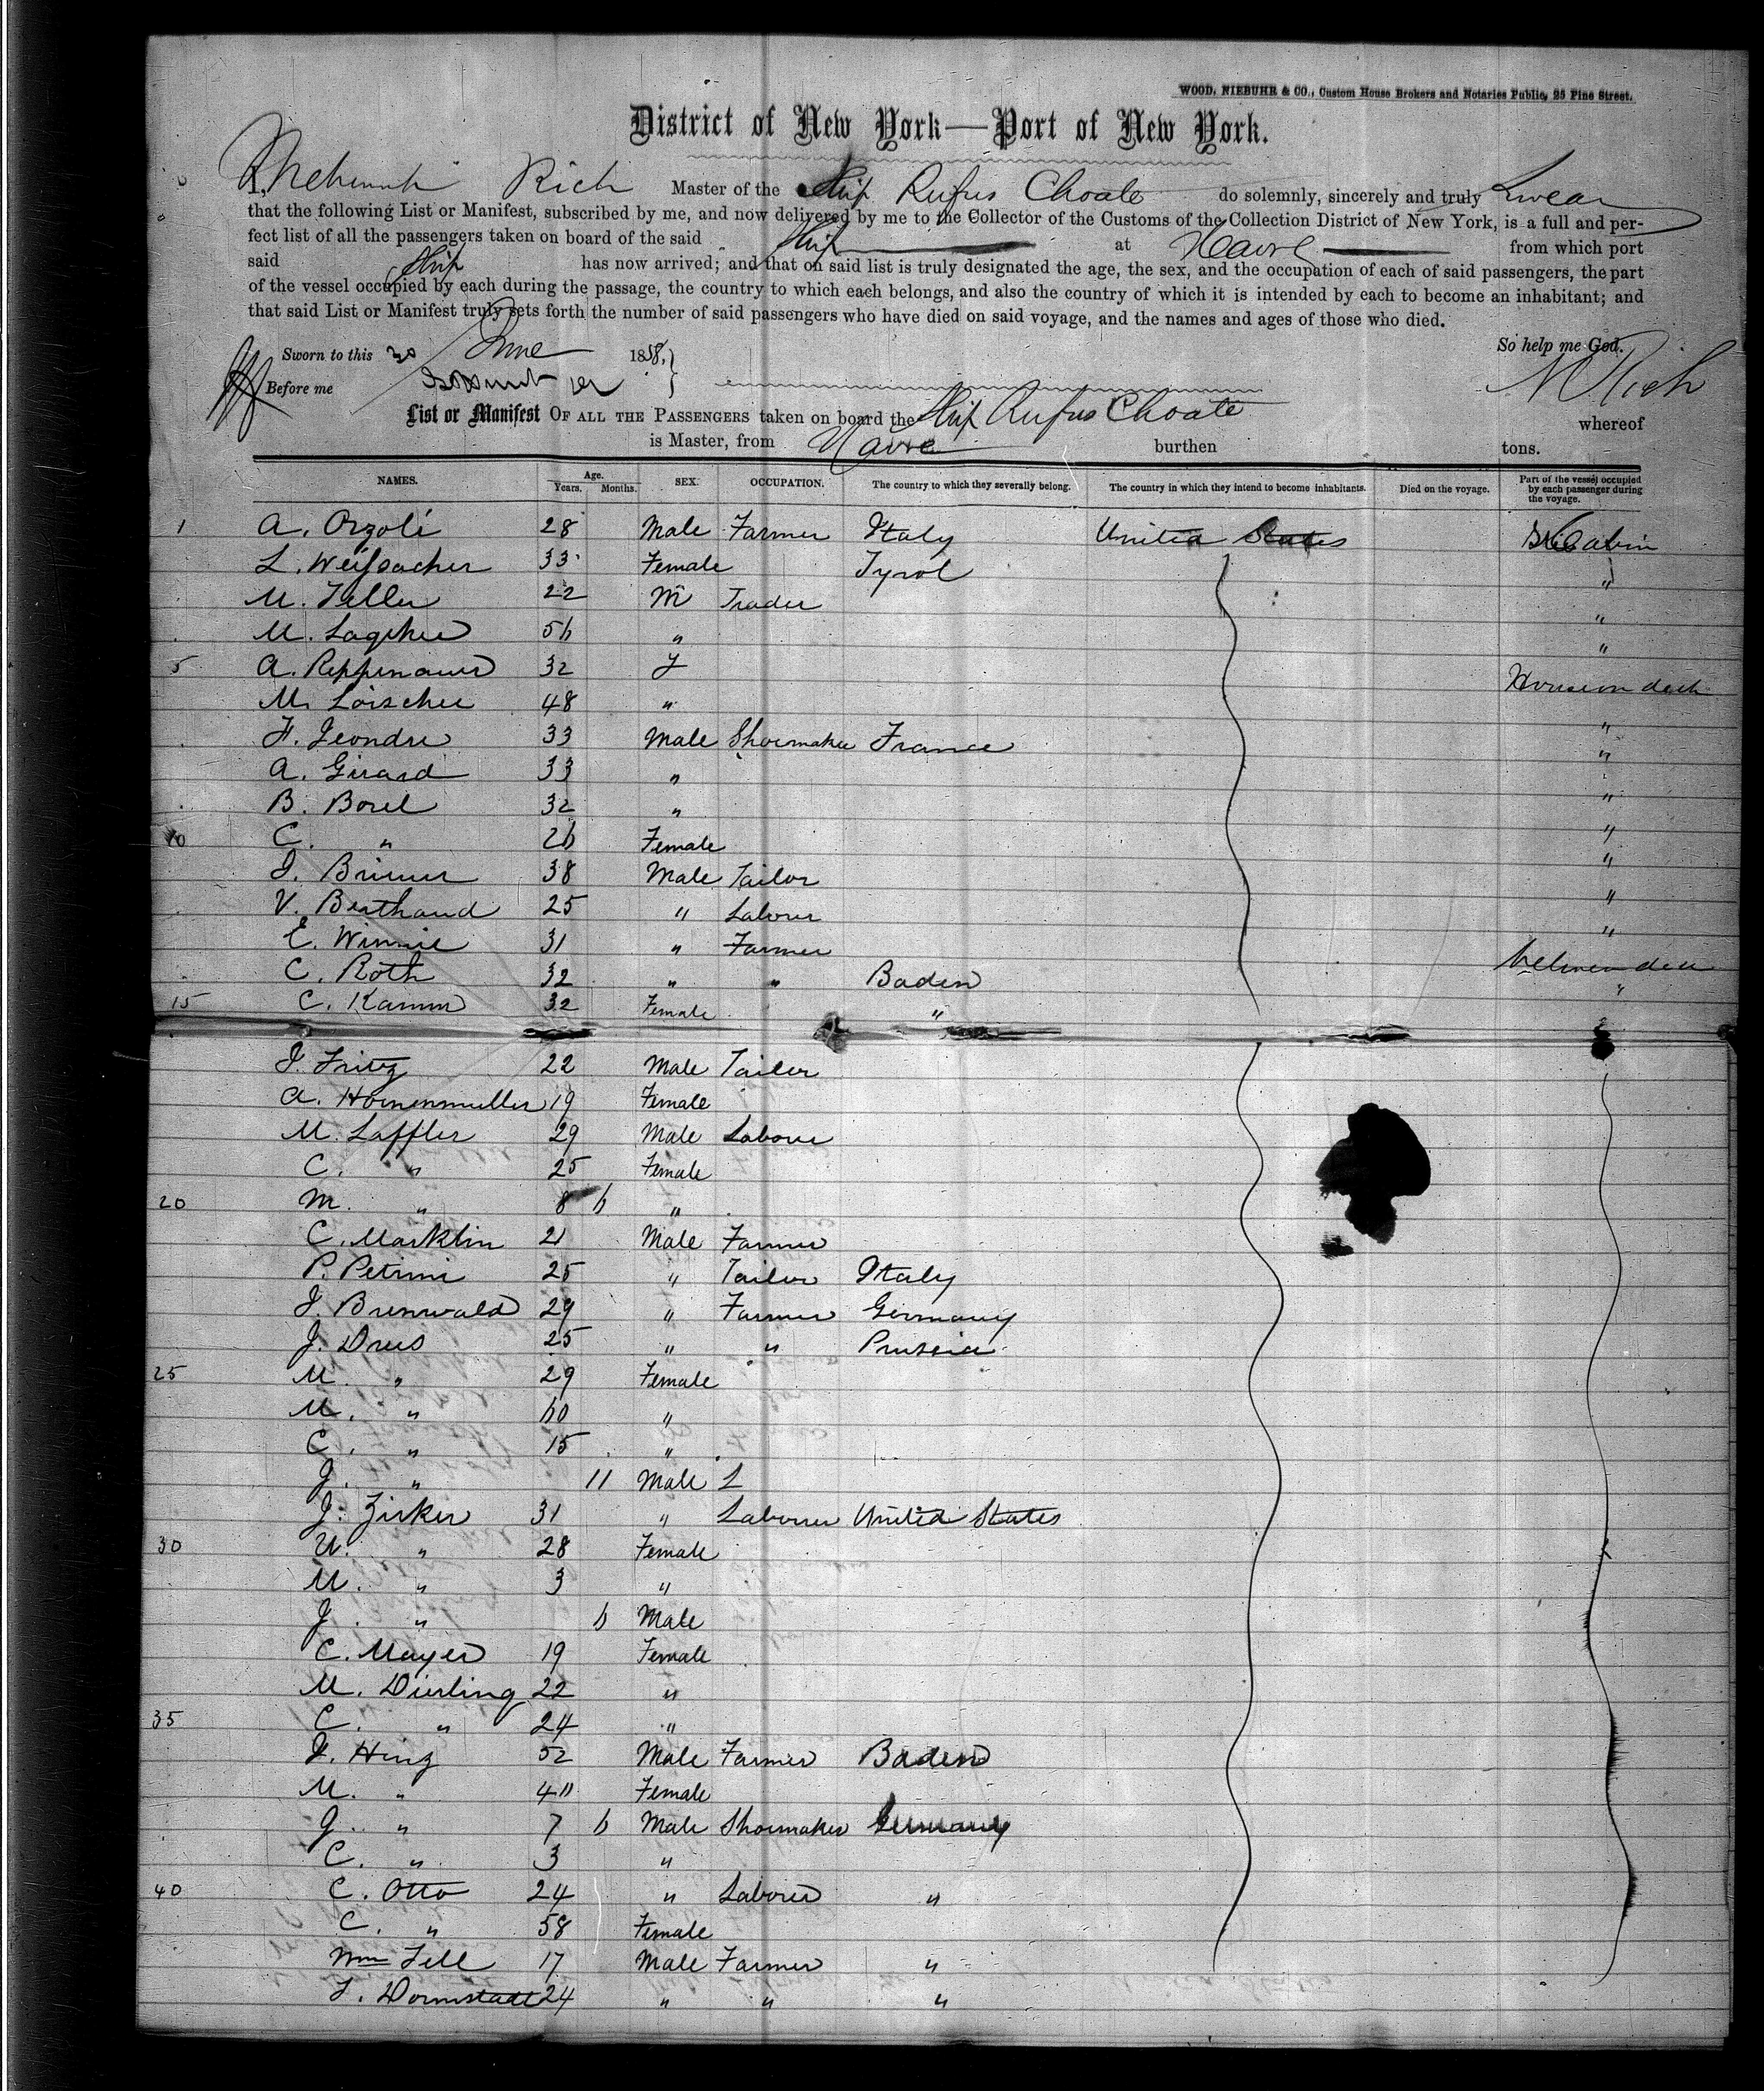 WOOD, NIEBUHR & CO., Custom House Brokers and Notaries Public, 25 Pine Street.
District of New York—Port of New York.
I, Nehemiah Rich Master of the Ship Rufus Choate do solemnly, sincerely and truly Swear
that the following List or Manifest, subscribed by me, and now delivered by me to the Collector of the Customs of the Collection District of New York, is a full and per-
fect list of all the passengers taken on board of the said Ship at Havre from which port
said Ship has now arrived; and that on said list is truly designated the age, the sex, and the occupation of each of said passengers, the part
of the vessel occupied by each during the passage, the country to which each belongs, and also the country of which it is intended by each to become an inhabitant; and
that said List or Manifest truly sets forth the number of said passengers who have died on said voyage, and the names and ages of those who died.
Sworn to this 30 June 1858. So help me God.
Before me N Rich
List or Manifest OF ALL THE PASSENGERS taken on board the Ship Rufus Choate whereof
is Master, from Havre burthen tons.
NAMES. Age. Years. Months. SEX. OCCUPATION. The country to which they severally belong. The country in which they intend to become inhabitants. Died on the voyage. Part of the vessel occupied by each passenger during the voyage.
1 A. Orzoli 28 Male Farmer Italy United States Cabin
L. 33 Female Tyrol "
M. Feller 22 M Trader "
M. 56 " "
5 A. Reppenauer 32 F House on deck
M. Loischer 48 " "
F. Jeondre 33 Male Shoemaker France "
A. Girard 33 " "
B. Borel 32 " "
10 C. " 26 Female "
J. 38 Male Tailor "
V. Berthaud 25 " Labourer "
E. Winnie 31 " Farmer "
C. Roth 32 " " Baden Between deck
15 C. Kamm 32 Female " "
J. Fritz 22 Male Tailor
A. Hornenmuller 19 Female
M. Laffler 29 Male Labourer
C. " 25 Female
20 M. " 8 6 "
C. Marklin 21 Male Farmer
P. Petrini 25 " Tailor Italy
J. Brenwald 29 " Farmer Germany
J. Drees 25 " " Prussia
25 M. " 29 Female
M. " 60 "
C. " 15 "
J. " 11 Male L
J. Zirker 31 " Labourer United States
30 U. " 28 Female
M. " 3 "
J. " 6 Male
C. Mayer 19 Female
M. Dierling 22 "
35 C. " 24 "
F. Hinz 52 Male Farmer Baden
M. " 40 Female
J. " 7 6 Male Shoemaker Germany
C. " 3 "
40 C. Otto 24 " Labourer "
C. " 58 Female
Wm Fell 17 Male Farmer "
F. Dormstadt 24 " " "